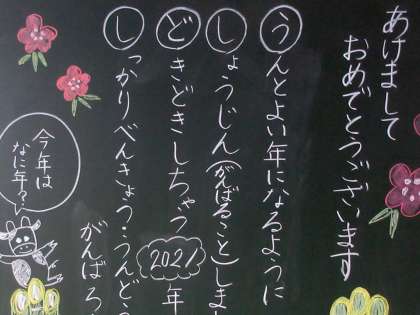 あけまして
おめでとうございます
うんとよい年になるように
しょうじん(がんばること)しま
どきどきしちゃう2021年
しっかりべんきょう・うんど
がんばろ
今年は
なに年?